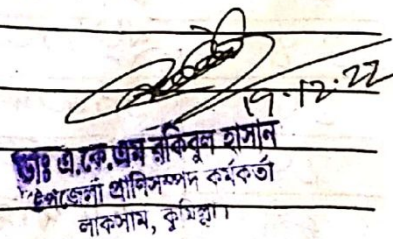 19.12.22
ডাঃ এ.কে.এম রকিবুল হাসান
উপজেলা প্রাণিসম্পদ কর্মকর্তা
লাকসাম, কুমিল্লা।